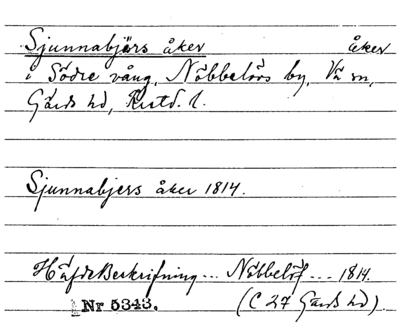 Sjunnabjärs åker åker
i Södre vång, Nöbbelövs by, Vä sn,
Gärds hd, Kristd. l.
Sjunnabjers åker 1814.
HäfdeBeskrifning... Nöbbelöf... 1814.
Nr 5343. (C 27 Gärds hd).